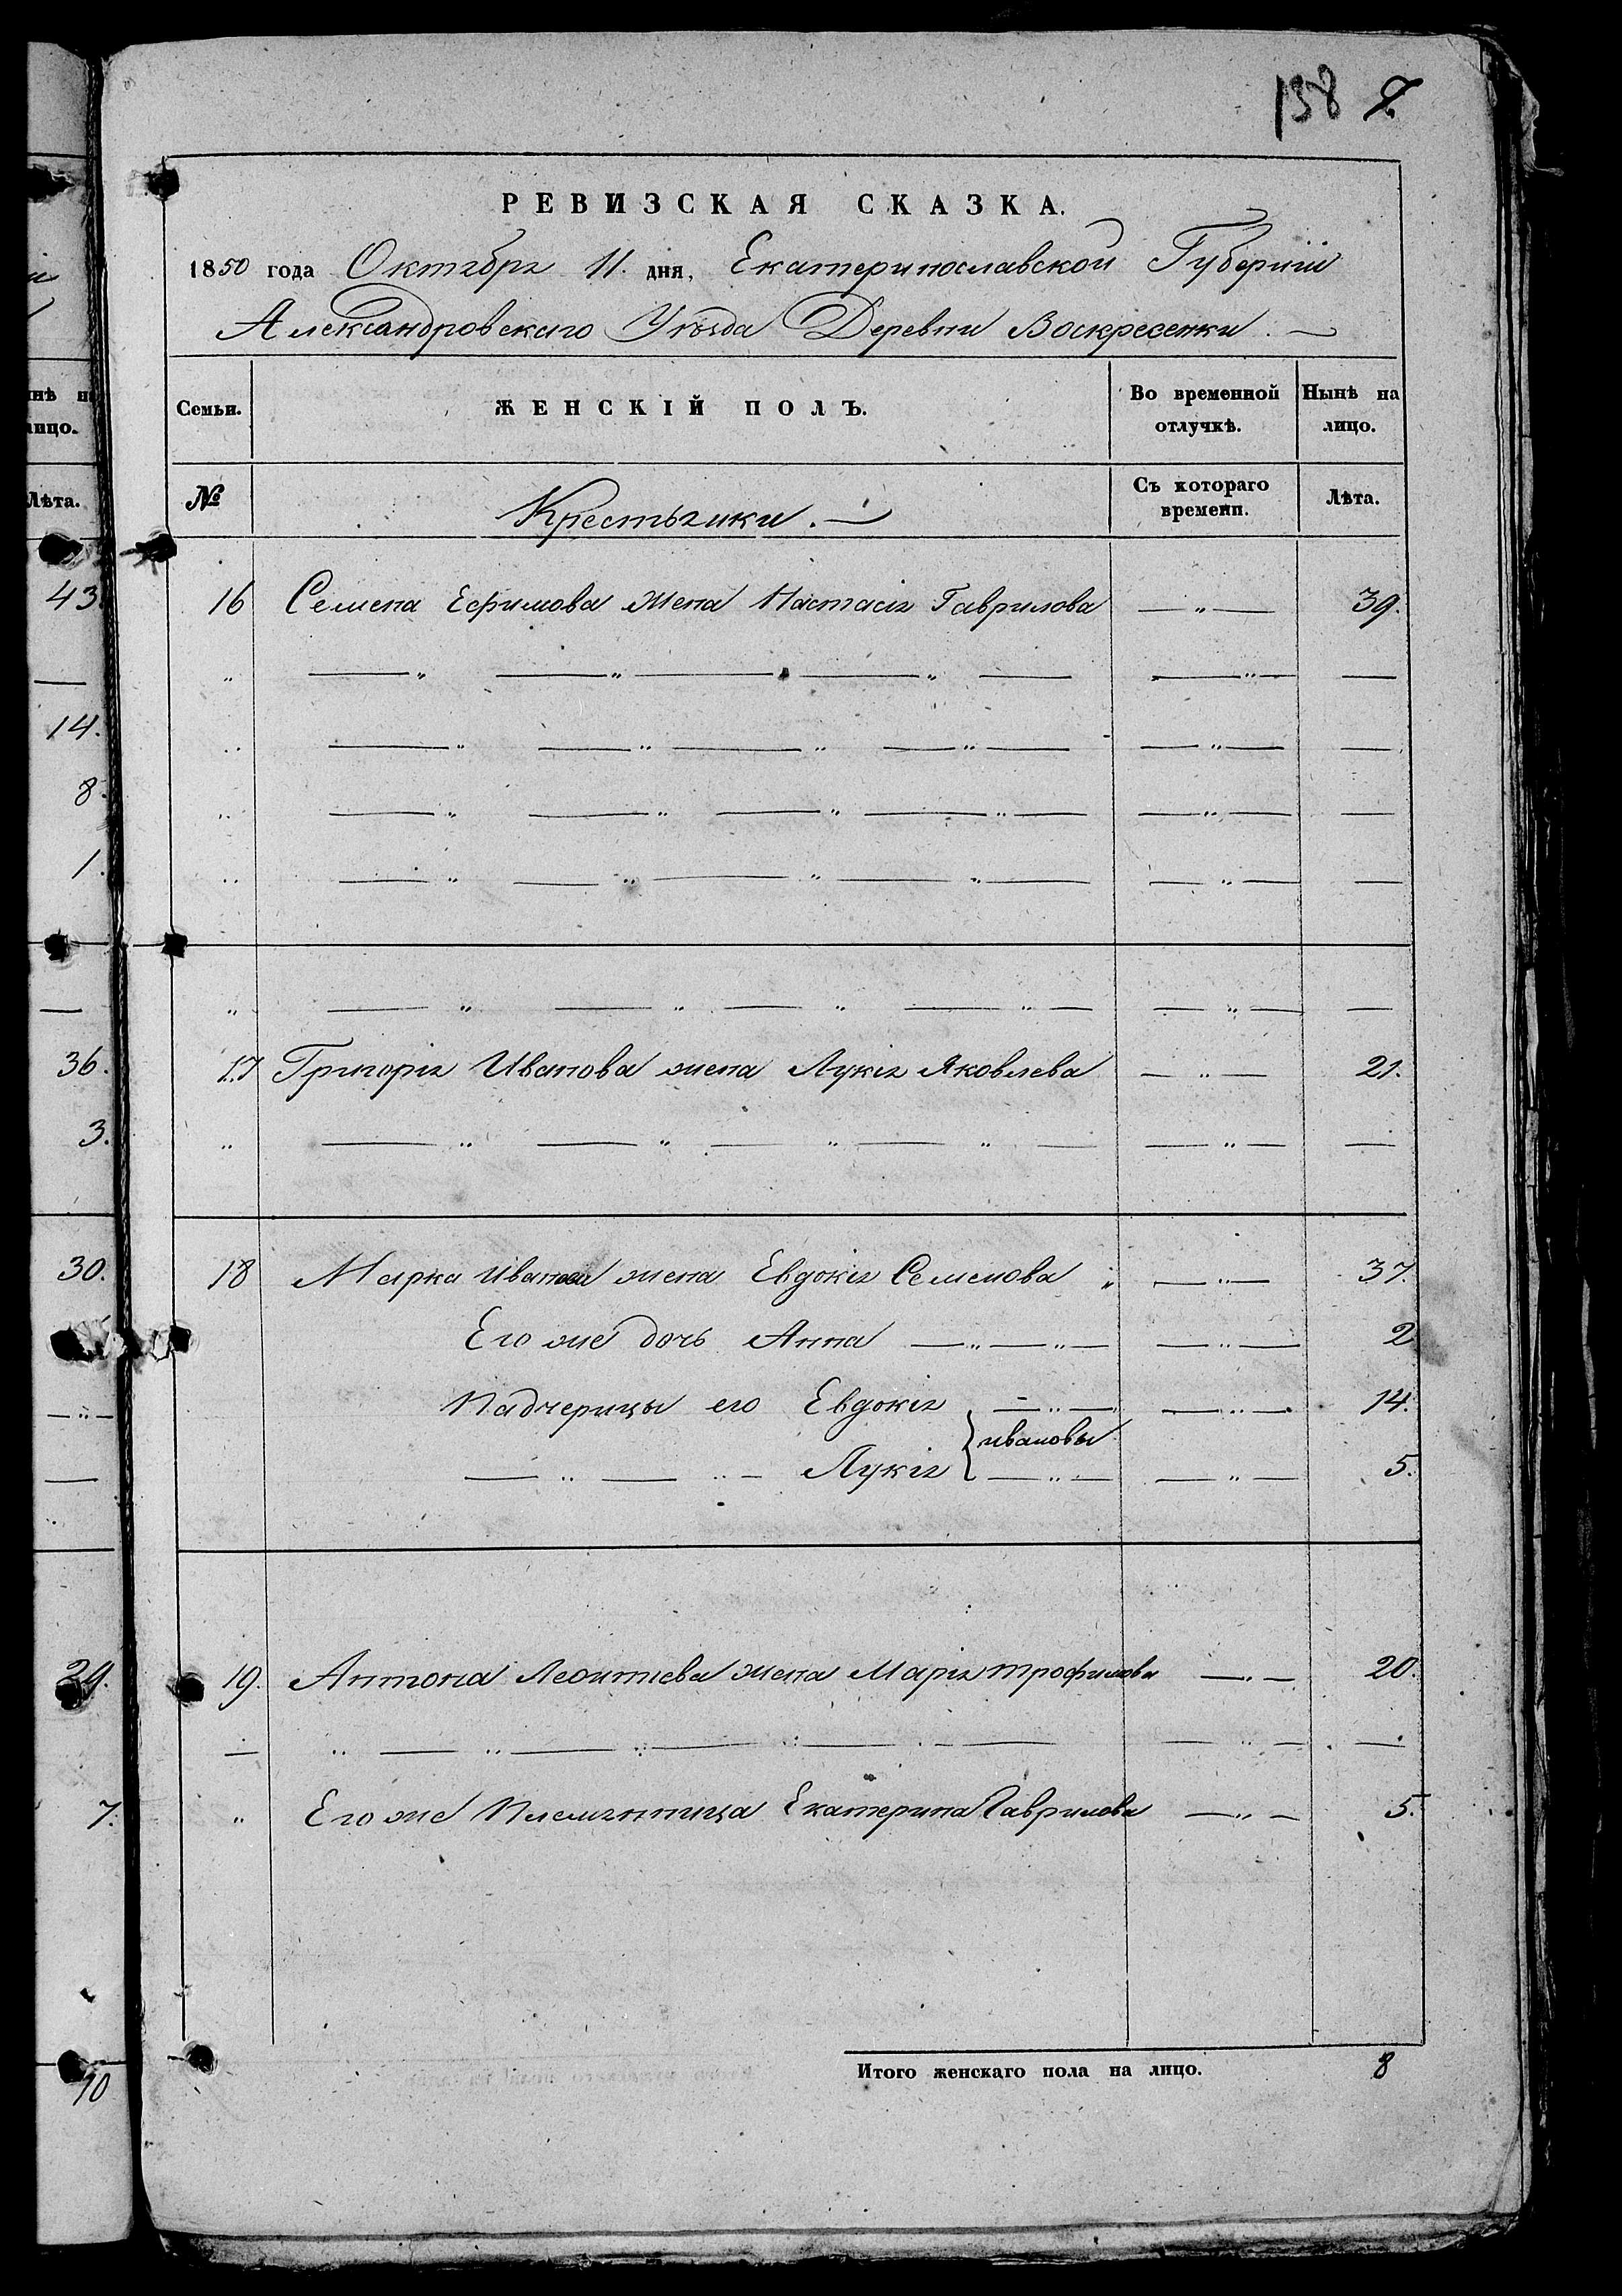 138 7.
РЕВИЗСКАЯ СКАЗКА.
1850 года Октября 11. дня, Екатеринославской Губернiи
Александровскаго Уѣзда Деревни Воскресенки. —
Семьи. ЖЕНСКIЙ ПОЛЪ. Во временной отлучкѣ. Нынѣ на лицо.
№ Крестьянки. — Съ котораго времени. Лѣта.
16 Семена Ефимова жена Настасiя Гаврилова — „ — 39.
17 Григорiя Иванова жена Лукiя Яковлева — „ — 21.
18 Марка Иванова жена Евдокiя Семенова „ — „ — 37.
Его же дочь Анна — „ — „ — — „ — 2
Падчерицы его Евдокiя — „ — — „ — 14.
ивановы
— „ — „ — Лукiя — „ — — „ — 5.
19. Антона Леонтiева жена Марiя трофимова — „ — 20.
„ Его же Племянница Екатерина Гаврилова — „ — 5.
Итого женскаго пола на лицо. 8
нѣ на
лицо.
Лѣта.
43.
14.
8.
1.
36.
3.
30.
29.
7.
10